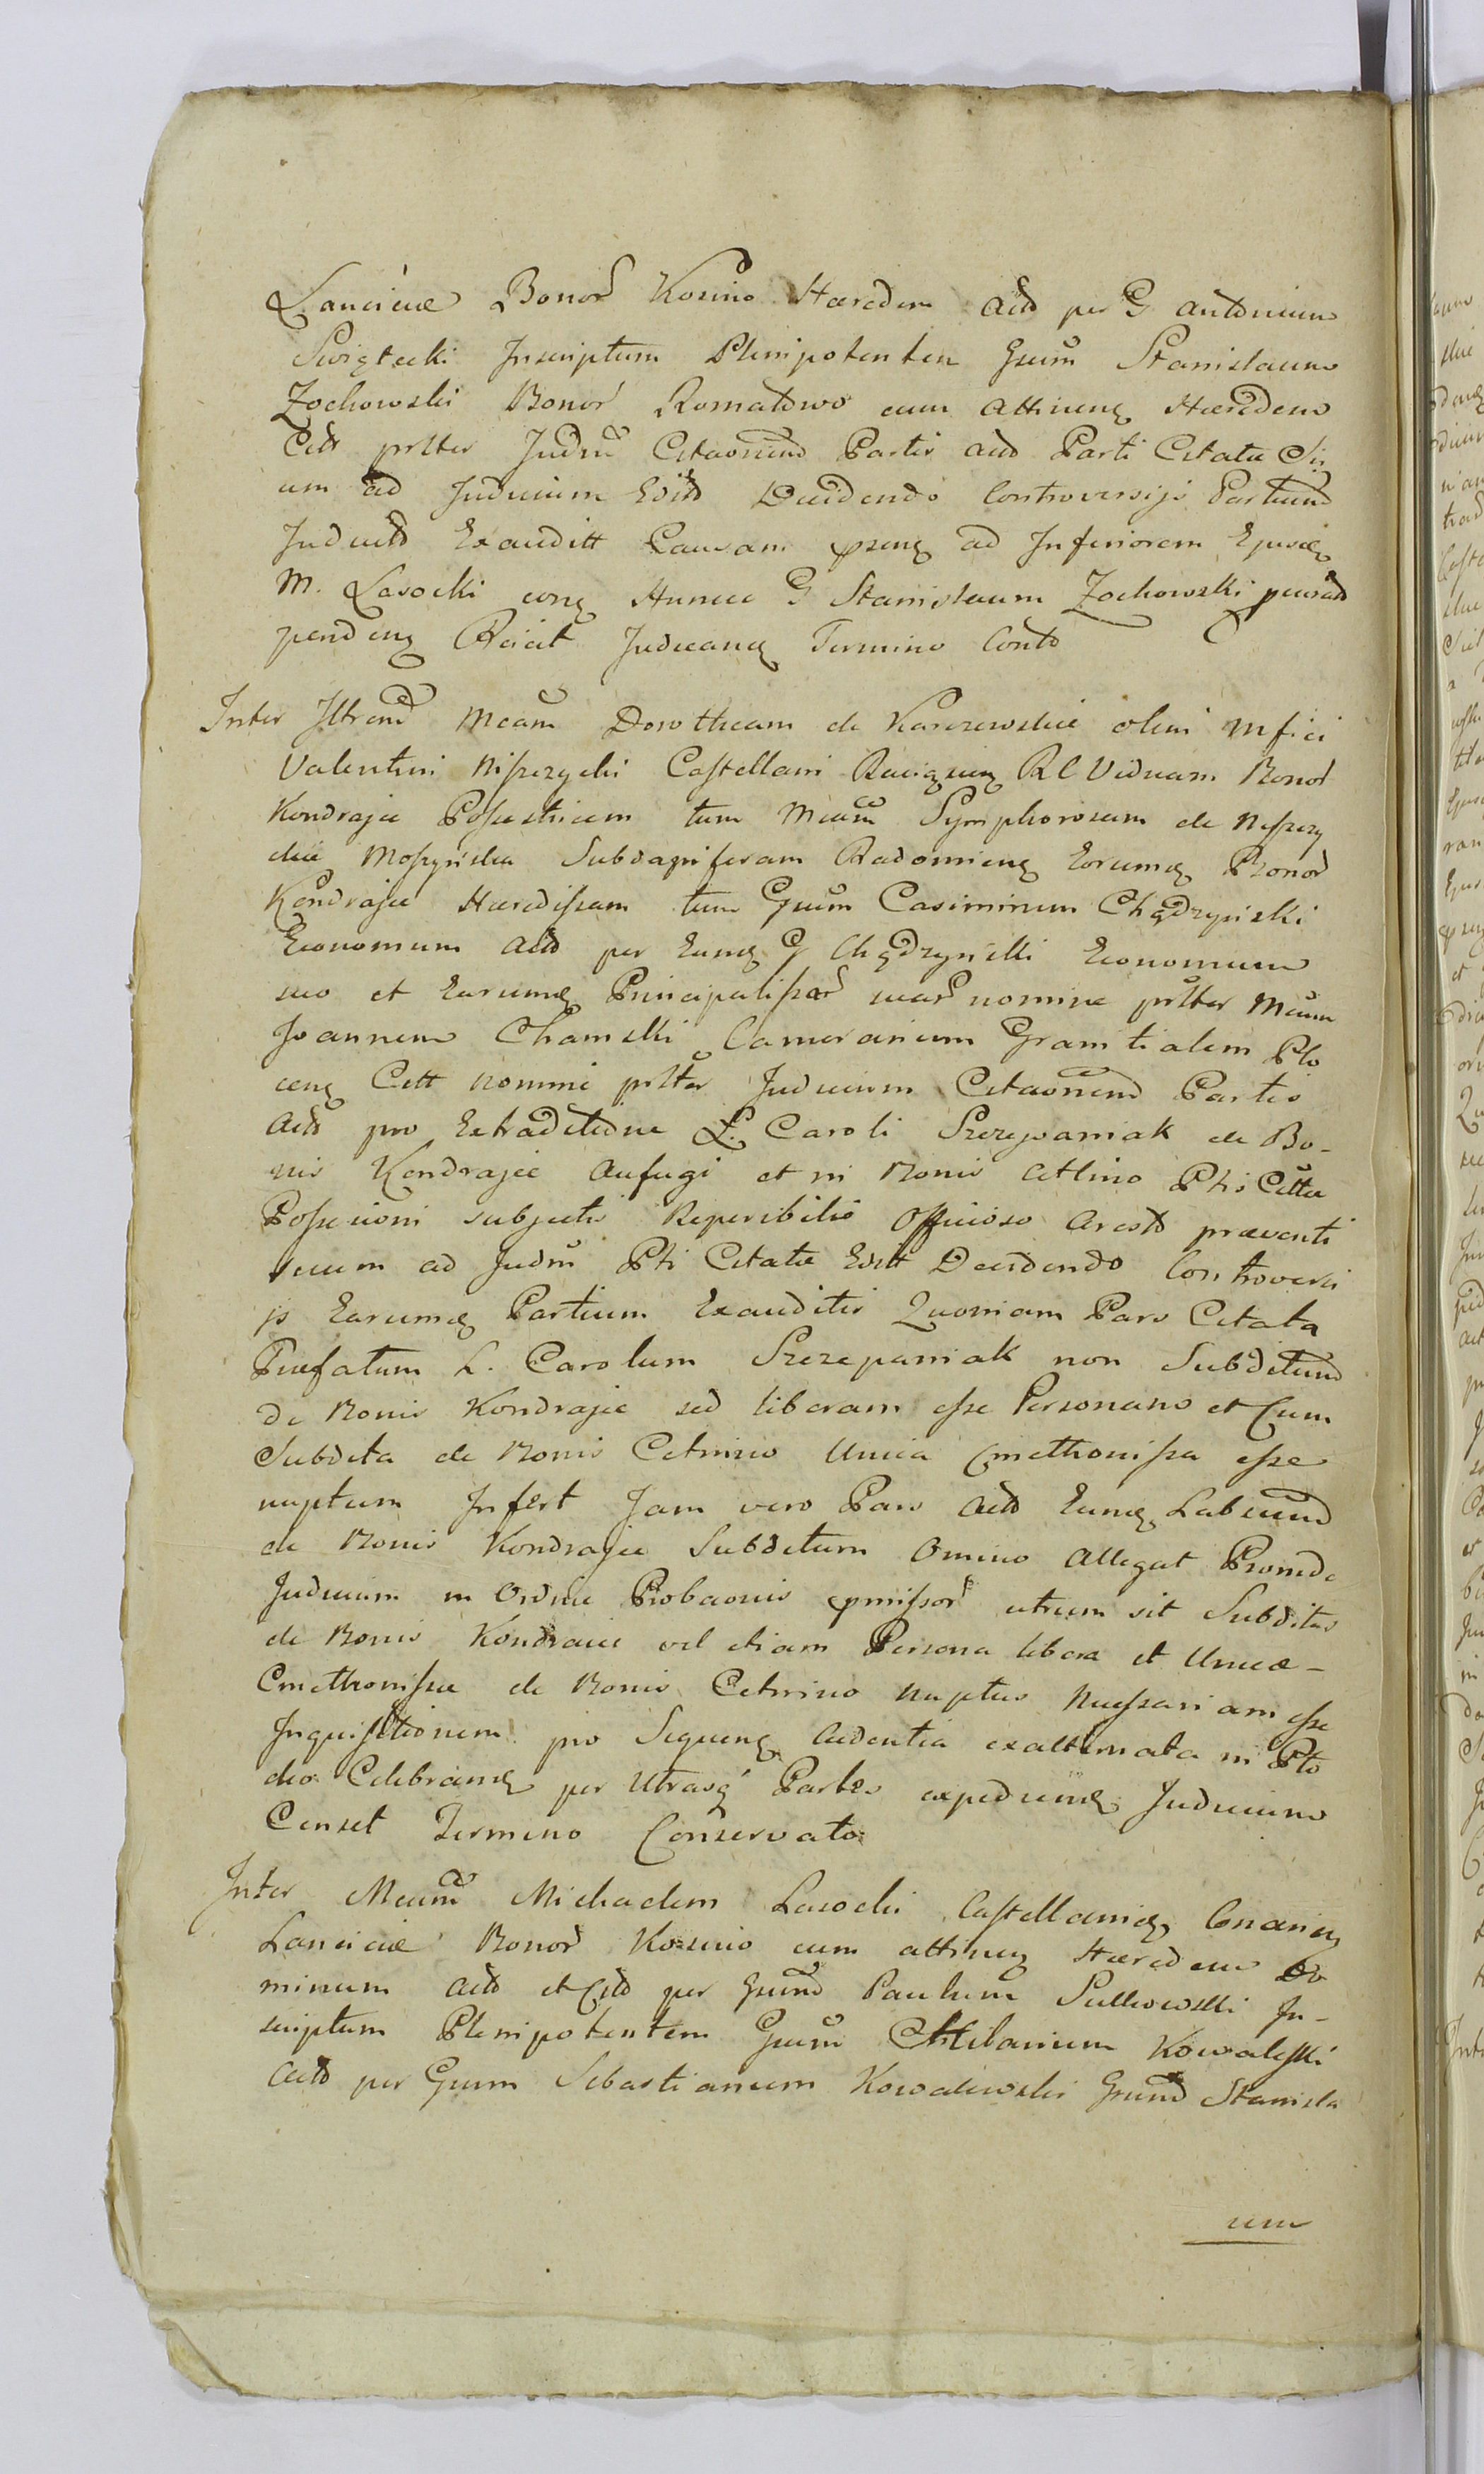 Lanciciae Bonor Kozino Haeredem Actô per G Antonium
Swiątecki Inscriptum Plenipotenten Gsum Stanislaum
Żochowski Bonor Romatowo cum Attineng Haeredem
Citt prlter Judm Citaonem Partis Actô Parti Citatae Su
um ad Judicium Editt Decidendo Controversijs Partium
Judictô Exauditt Causam pnseng ad Inferiorem Ejusdg
M. Lasocki cong Hunce G Stanislaum Żochowski
pendeng Reicit Judicang Termino Contô
Inter Illrem Mcam Dorotheam de Karczewskie olim Mfici
Valentini Niszczycki Castellani Raciązeng RL Viduam Bonor
Kondrajec Possestricem tum Mcam Symphorosam de Niszczy
ckie Moszynska Subdapiferam Radomieng Eorumq Bonor
Kondrajec Haeredissam tum Gsum Casimirum Chądzyński
Economum Actô per Eumq G Chądzynski Economum
suo et Earumq Principalissar suar nomine prlter Mcum
Joannem Chamski Camerarium Granitialem Plo
ceng Citt nomine prlter Judicium Citaonem Partis
Actô pro Extraditione L. Caroli Szczepaniak de Bo-
nis Kondrajec Aufugi et in Bonis Cetlino Ptis Cittae
Possessioni subjectis Reperibilis Officioso Arestô praeventi
suum ad Judm Pti Citatae Editt Decidendo Controversi
js Earumq Partium Exauditis Quoniam Pars Citata
Praefatum L. Carolum Szczepaniak non Subditum
de Bonis Kondrajec sed liberam esse Personam et Cum
Subdita de Bonis Cetnino Unica Cmethonissa esse
nuptum Infert Jam vero Pars Actô Eumq Labsum
de Bonis Kondrajec Subditum Omino Allegat Proinde
Judicium in Ordine Probaonis pmissor utrum sit Subditus
de Bonis Kondraiec vel etiam Persona libera et Unicae-
Cmethonissae de Bonis Cetnino nuptus Necessariam esse
Inquisitionem pro Sequeng Cadentia exalternata in Pto
dio Celebramq per Utrasq Partes expediendq Judicium
Censet Termino Conservato
Inter Mcum Michaelem Lasocki Castellanidg Cnarieng
Lanciciae Bonor Kozino cum attineng Haeredem Do
minum Actô et Citô per Gsum Paulum Sulkowski In-
scriptum Plenipotentem Gsum Kowalesski
Actô per Gsum Sebastianum Kowalewski Gsum Stanisla
um